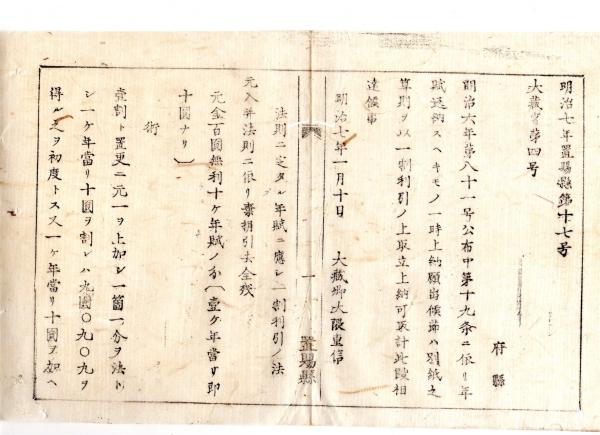 明治七年置賜縣第十七号
大蔵省第四号
府縣
明治六年第八十一号公布中第十九条ニ依リ年
賦返納スヘキモノ一時上納願出候節ハ別紙之
算則ヲ以一割利引ノ上取立上納可取計此段相
達候事
明治七年一月十日 大蔵卿大隈重信
一
置賜縣
法則ニ定タル年賦ニ應シ一割利引ノ法
元入并法則ニ依リ棄捐引去全残
元金百圓無利十ケ年賦ノ分(壹ケ年當リ即
十圓ナリ)
術
壹割ト置更ニ元一ヲ上加シ一箇一分ヲ法ト
シ一ケ年當リ十圓ヲ割レハ九圓〇九〇九ヲ
得ル之ヲ初度トス又一ケ年當リ十圓ヲ加ヘ